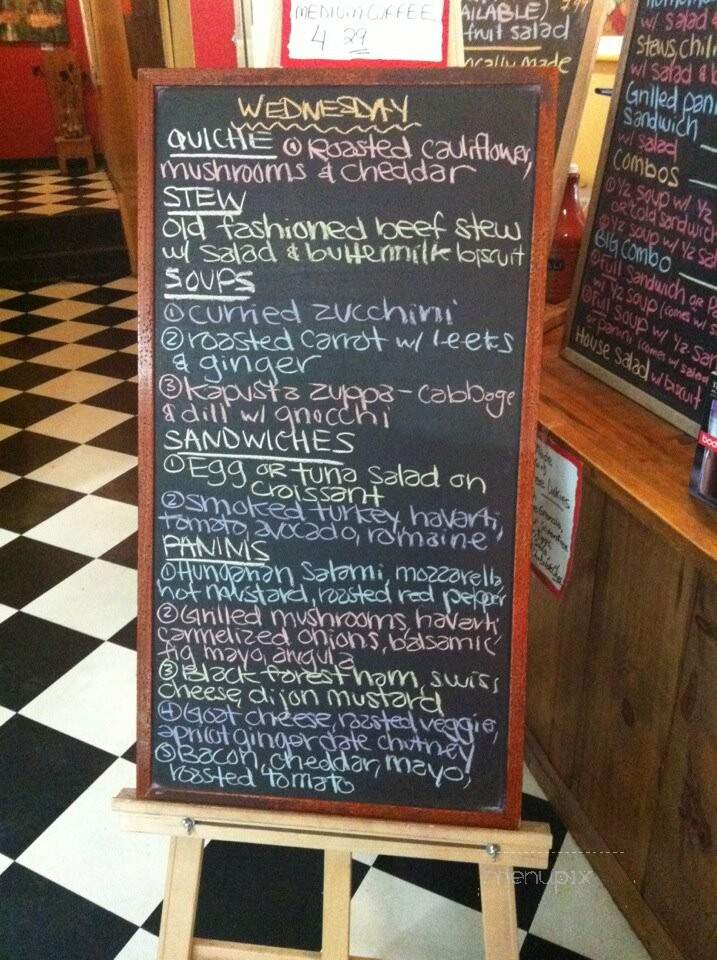 MEDIUM COFFEE
4 29
AILABLE)
fruit salad
ocally made
WEDNESDAY
QUICHE ① Roasted cauliflower,
mushrooms & cheddar
STEW
Old fashioned beef stew
w/ salad & buttermilk biscuit
SOUPS
① curried zucchini
② roasted carrot w/ leeks
& ginger
③ Kapusta zuppa - cabbage
& dill w/ gnocchi
SANDWICHES
① Egg OR tuna salad on
croissant
② smoked turkey, havarti,
tomato, avocado, romaine
PANINIS
① Hungarian salami, mozzarella,
hot mustard, roasted red pepper
② Grilled mushrooms, havarti
carmelized onions, balsamic
fig mayo, arugula
③ Black forest ham, swiss
cheese, dijon mustard
④ Goat cheese, roasted veggie,
apricot ginger date chutney
⑤ Bacon, cheddar, mayo,
roasted tomato
w/ salad
Stews, chil
w/ salad &
Grilled pan
sandwich
w/ salad
COMBOS
① ½ soup w/ ½
or cold sandwich
② ½ soup w/ ½ sal
BIG COMBO
① Full sandwich or P
w/ ½ soup (comes w/ s
② Full soup w/ ½ sa
or panini (comes w/ salad
House Salad w/ biscuit
menupix